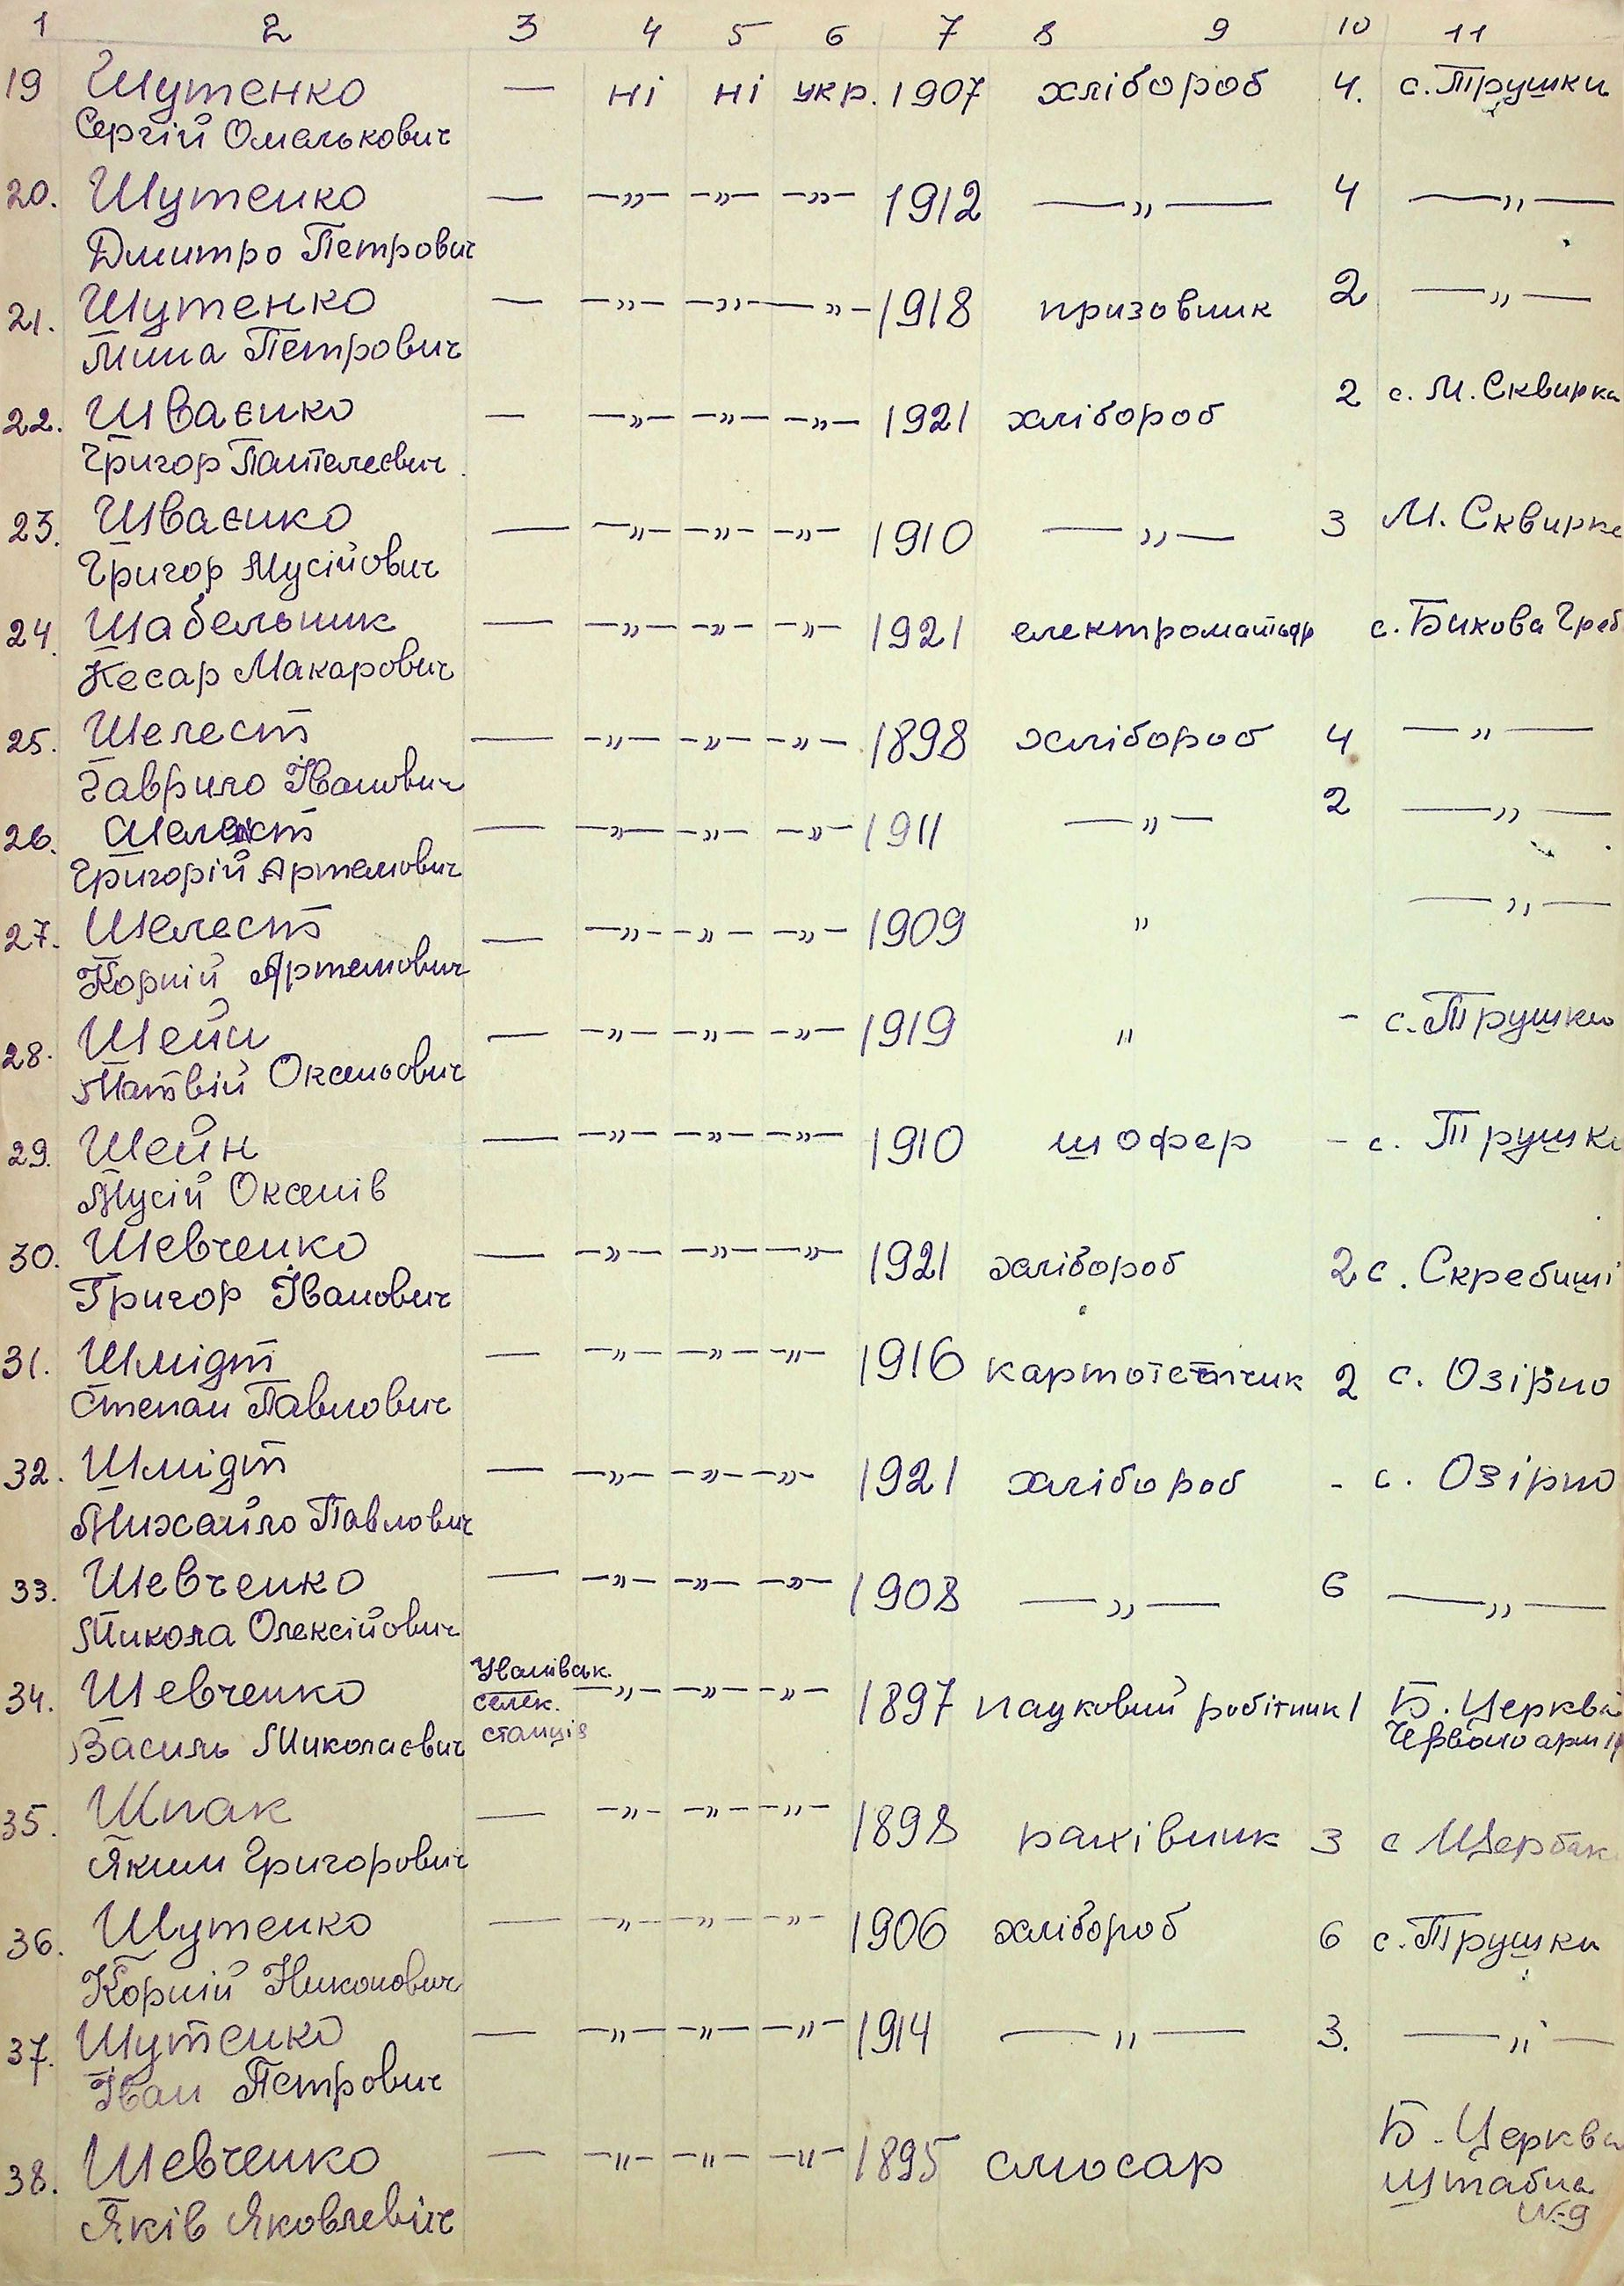 1 2 3 4 5 6 7 8 9 10 11
19 Шутенко — ні ні укр. 1907 хлібороб 4. с. Трушки
Сергій Омелькович
20. Шутенко — —„— —„— —„— 1912 —„— 4 —„—
Дмитро Петрович
21. Шутенко — —„— —„— —„— 1918 призовник 2 —„—
Мина Петрович
22. Шваєнко — —„— —„— —„— 1921 хлібороб 2 с. М. Сквирка
Григор Пантелеєвич
23. Шваєнко — —„— —„— —„— 1910 —„— 3 М. Сквирка
Григор Мусійович
24. Шабельник — —„— —„— —„— 1921 електромонтьор с. Бикова Греб
Кесар Макарович
25. Шелест — —„— —„— —„— 1898 хлібороб 4 —„—
Гаврило Іванович
26. Шелест — —„— —„— —„— 1911 —„— 2 —„—
Григорій Артемович
27. Шелест — —„— —„— —„— 1909 „ —„—
Корній Артемович
28. Шейн — —„— —„— —„— 1919 „ - с. Трушки
Матвій Оксаньович
29. Шейн — —„— —„— —„— 1910 шофер - с. Трушки
Мусій Оксенів
30. Шевченко — —„— —„— —„— 1921 хлібороб 2 с. Скребиші
Григор Іванович
31. Шмідт — —„— —„— —„— 1916 картотєтчик 2 с. Озірно
Степан Павлович
32. Шмідт — —„— —„— —„— 1921 хлібороб - с. Озірно
Михайло Павлович
33. Шевченко — —„— —„— —„— 1908 —„— 6 —„—
Микола Олексійович
34. Шевченко Іванівськ. —„— —„— —„— 1897 науковий робітник 1 Б. Церква
Василь Миколаєвич селек. станція Червоноарм
35. Шпак — —„— —„— —„— 1898 рахівник 3 с Щербак
Яким Григорович
36. Шутенко — —„— —„— —„— 1906 хлібороб 6 с. Трушки
Корній Никонович
37. Шутенко — —„— —„— —„— 1914 —„— 3. —„—
Іван Петрович
38. Шевченко — —„— —„— —„— 1895 слюсар Б. Церква
Яків Яковлевіч Штабна
№9